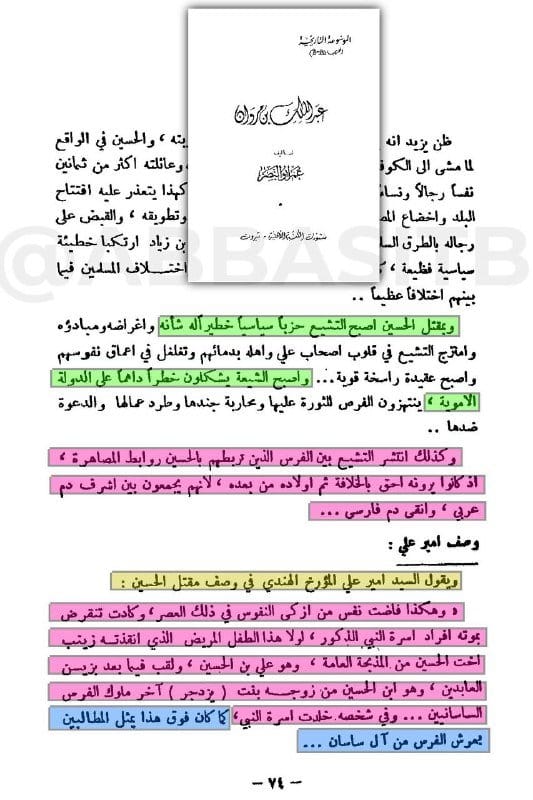 الموسوعة التاريخية
عبد الملك بن مروان
تأليف
عمر أبو النصر
منشورات المكتبة الأهلية - بيروت
ظن يزيد انه
يته ، والحسين في الواقع
لما مشى الى الكوفة
وعائلته اكثر من ثمانين
نفساً رجالاً ونساء
كهذا يتعذر عليه افتتاح
البلد واخضاع
وتطويقه ، والقبض على
رجاله بالطرق
بن زياد ارتكبا خطيئة
سياسية فظيعة ،
اختــلاف المسلمين فيما
بينهم اختلافاً عظيماً ..
@ABBAS
وبمقتل الحسين اصبح التشيع حزباً سياسياً خطيراً له شأنه واغراضه ومبادؤه
وامتزج التشيع في قلوب اصحاب علي واهله بدمائهم وتغلغل في اعماق نفوسهم
واصبح عقيدة راسخة قوية... واصبح الشيعة يشكلون خطراً داهماً على الدولة
الاموية ، ينتهزون الفرص للثورة عليها ومحاربة جندها وطرد عمالها والدعوة
ضدها ..
وكذلك انتشر التشيع بين الفرس الذين تربطهم بالحسين روابط المصاهرة ،
اذ كانوا يرونه احق بالخلافة ثم اولاده من بعده ، لانهم يجمعون بين اشرف دم
عربي ، وانقى دم فارسي ...
وصف امير علي :
ويقول السيد امير علي المؤرخ الهندي في وصف مقتل الحسين :
« وهكذا فاضت نفس من ازكى النفوس في ذلك العصر ، وكادت تنقرض
بموته افراد اسرة النبي الذكور ، لولا هذا الطفل المريض الذي انقذتــه زينب
اخت الحسين من المذبحة العامة ، وهو علي بن الحسين ، ولقب فيما بعد بزيــن
العابدين ، وهو ابن الحسين من زوجــه بنت ( يزدجر ) آخر ملوك الفرس
الساسانيين ... وفي شخصه خلدت اسرة النبي ، كما كان فوق هذا يمثل المطالبين
بعرش الفرس من آل ساسان ...
- ٧٤ -